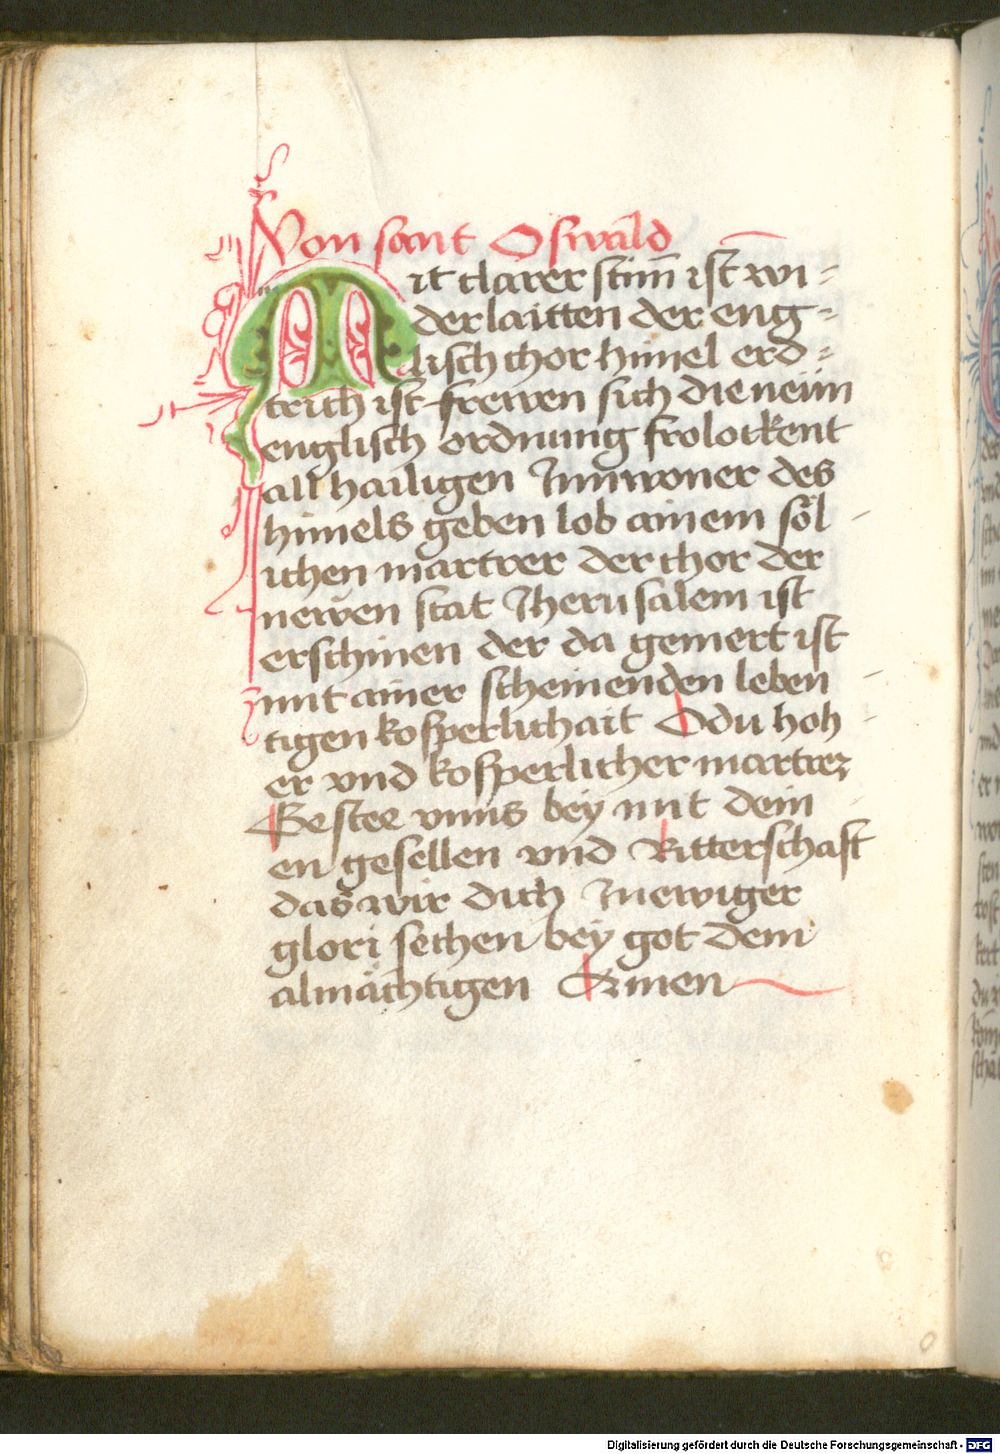 Von sant Oswald
Mit clarer stim̄ ist wi-
derlaitten der eng-
lisch chor himel erd-
trich ist frewen sich die neün
englisch ordnung frolockent
all hailigen Innwoner des
himels geben lob ainem söl-
ichen martrer der chor der
newen stat Jherusalem ist
erschinen der da gemert ist
mit ainer scheinenden leben-
tigen kosperlichait O du hoh-
er vnd kosperlicher martrer
Bestee vnns bey mit dein-
en gesellen vnd Ritterschaft
das wir dich In ewiger
glori sechen bey got dem
almächtigen Amen
Digitalisierung gefördert durch die Deutsche Forschungsgemeinschaft - DFG